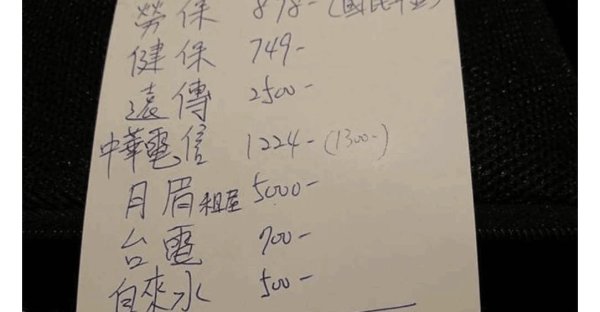 勞保 878-(國民年金)
健保 749-
遠傳 2500-
中華電信 1224-(1300-)
月眉租屋 5000-
台電 700-
自來水 500-